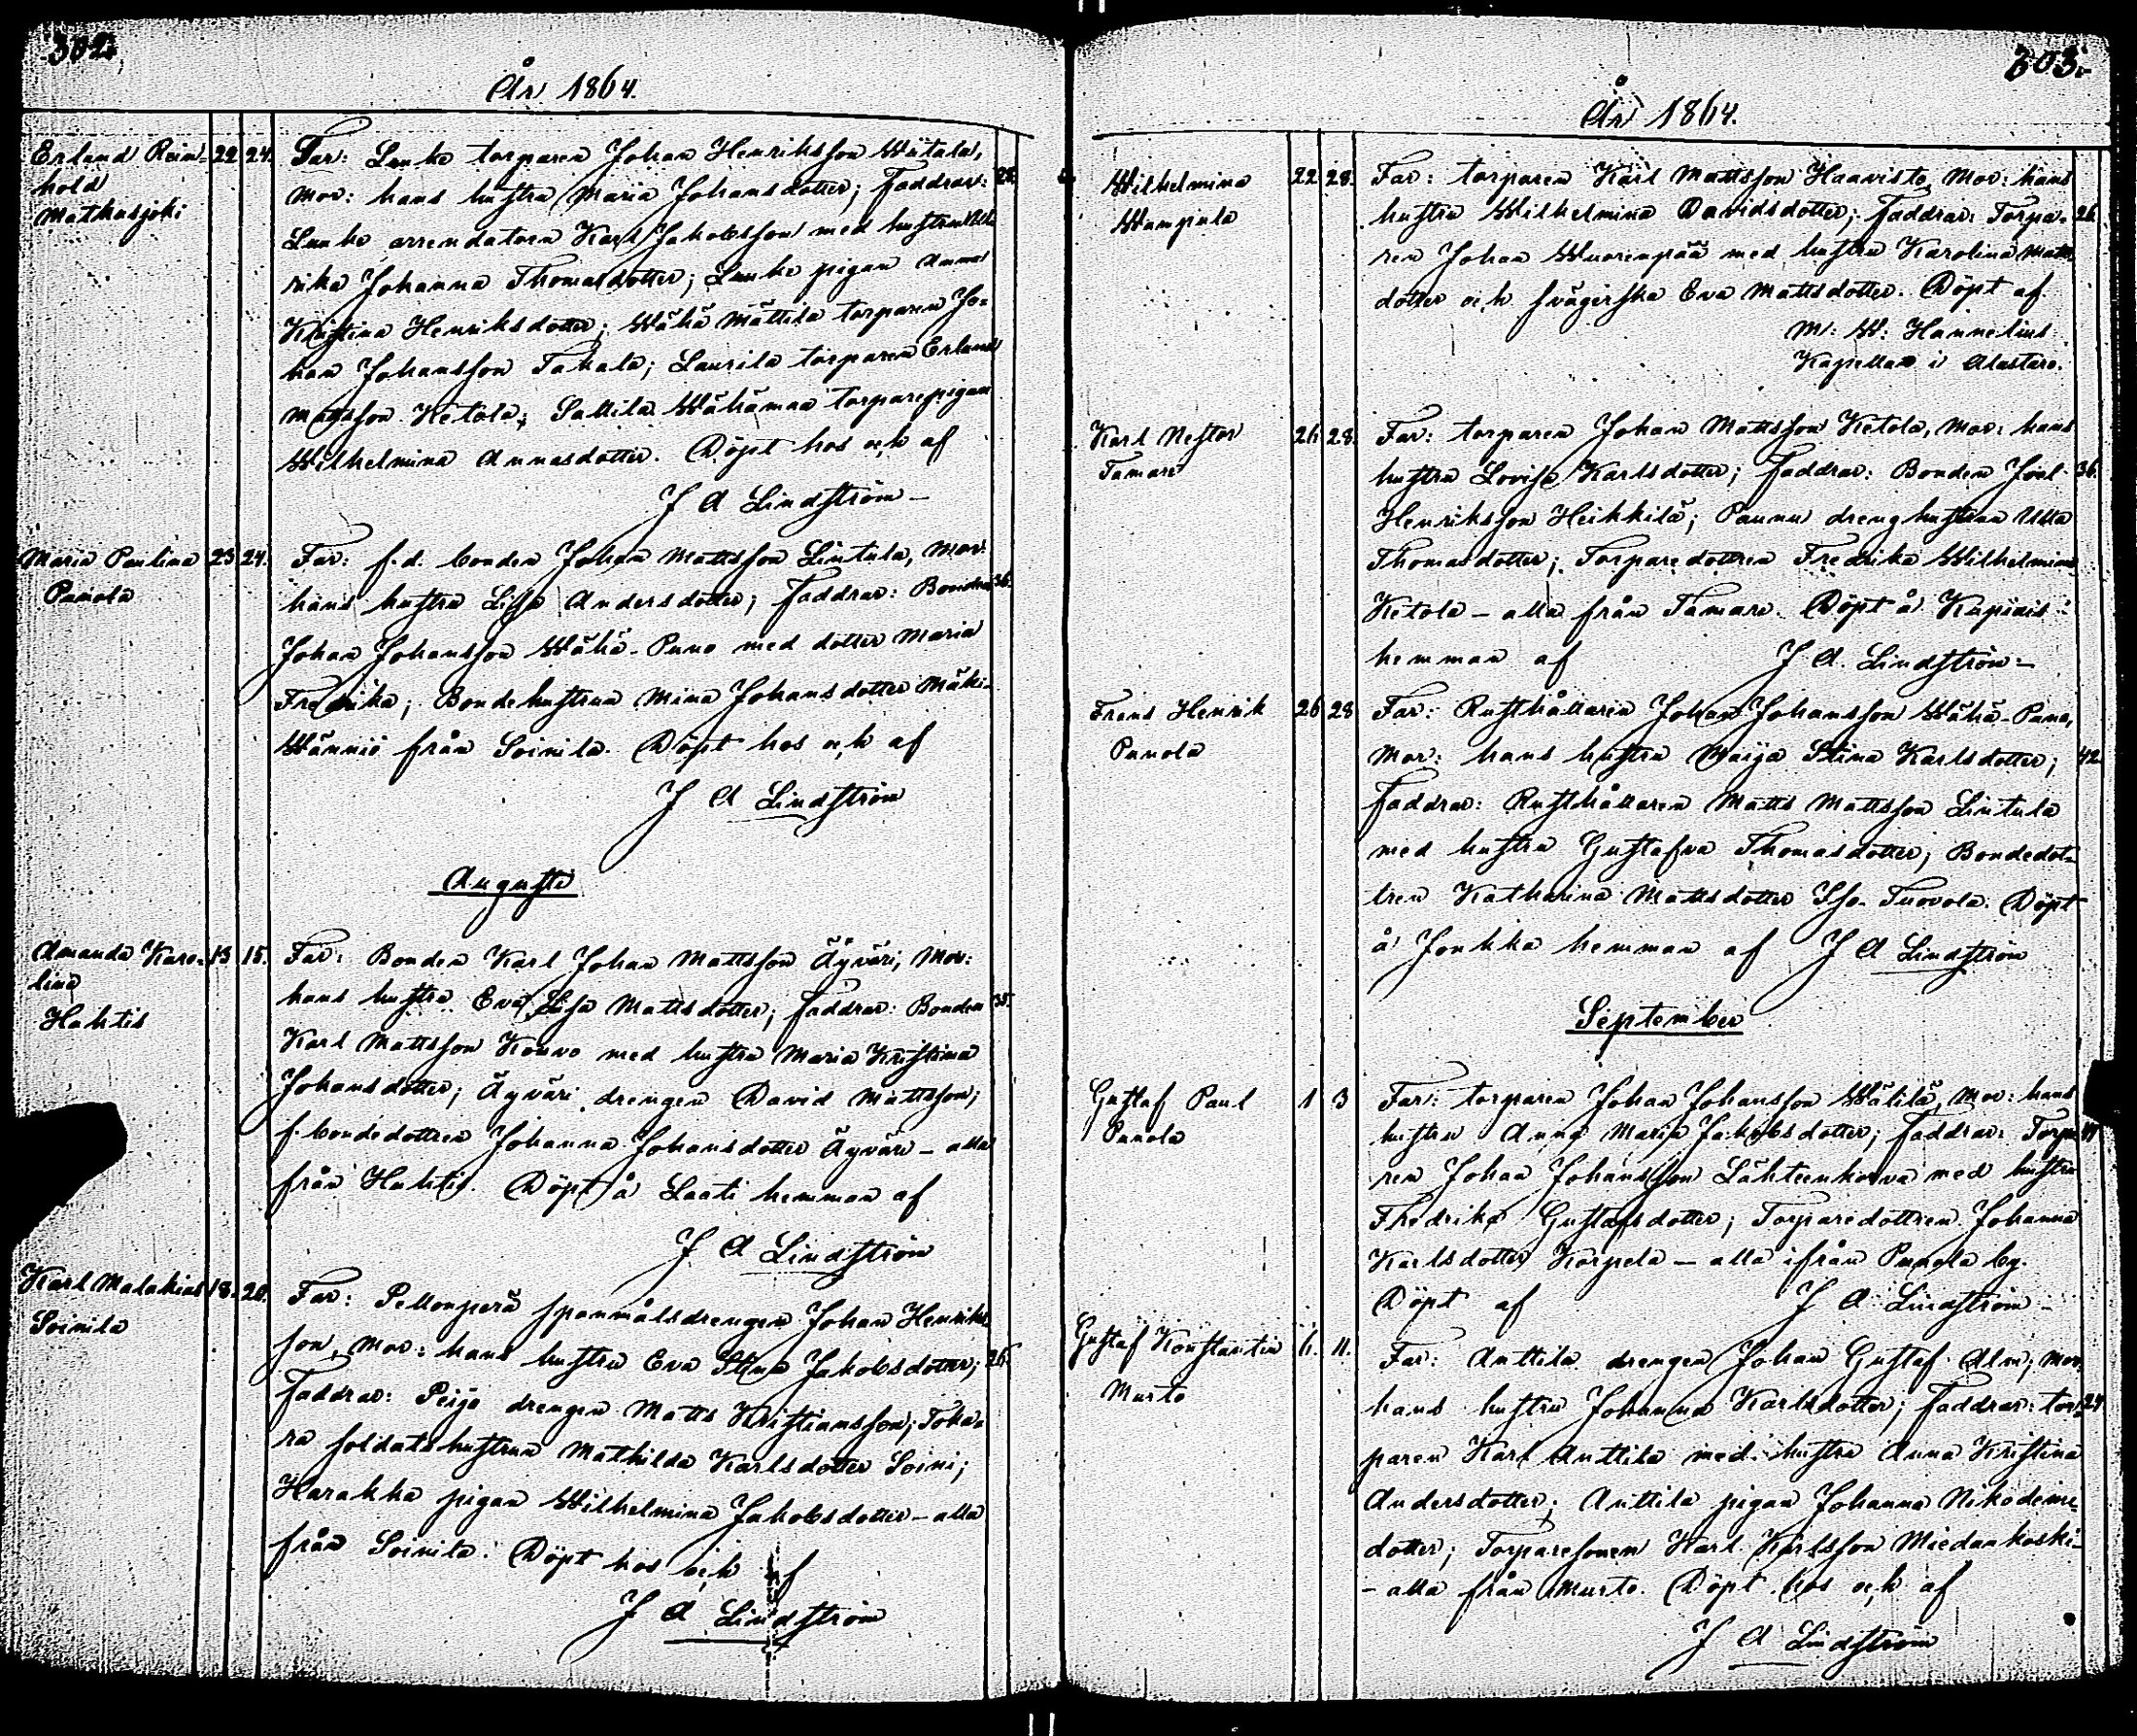 302.
År 1864.
Erland Rein- 22 24. Far: Lauko torparen Johan Henriksson Wätala,
hold mor: hans hustru Maria Johansdotter; Faddrar: 28.
Mathusjoki Lauko arrendatorn Karl Jakobsson med hustru
rika Johanna Thomasdotter; Lauko pigan Anna
Kristina Henriksdotter; Wähä Mättila torparen Jo-
han Johansson Takala; Laurila torparen Erland
Mattsson Ketola; Sallila Wähämaa torparepigan
Wilhelmina Annasdotter. Döpt hos och af
J A Lindström
Maria Paulina 23 24. Far: f.d. bonden Johan Mattsson Lintula, Mor:
Punola hans hustru Lisa Andersdotter; Faddrar: Bonden 36.
Johan Johansson Wähä-Puno med dotter Maria
Fredrika; Bondehustrun Mina Johansdotter Mäki-
Wänniö från Soinila. Döpt hos och af
J A Lindström
Augusti
Amanda Karo- 13 15. Far: Bonden Karl Johan Mattsson Äyväri, Mor:
lina hans hustru Eva Lisa Mattsdotter; Faddrar: Bonden 35.
Hahtis Karl Mattsson Kouvo med hustru Maria Kristina
Johansdotter; Äyväri drengen David Mattsson;
f. bondedottren Johanna Johansdotter Äyväri - alla
från Huhtis. Döpt å Laati hemman af
J A Lindström
Karl Malakias 18. 20. Far: Pellonperä spanmålsdrengen Johan Henriks-
Soinila son, Mor: hans hustru Eva Stina Jakobsdotter; 26.
Faddrar: Peijo drengen Matts Kristiansson; Toka-
ra soldatshustrun Mathilda Karlsdotter Soini;
Harakka pigan Wilhelmina Jakobsdotter - alla
från Soinila. Döpt hos och af
J A Lindström
303.
År 1864.
Wilhelmina 22 28. Far: torparen Karl Mattsson Haavisto, Mor: hans
Wampula hustru Wilhelmina Davidsdotter; Faddrar: Torpa- 26.
ren Johan Wuorenpää med hustru Karolina Matts
dotter och svägerska Eva Mattsdotter. Döpt af
M: W: Hannelius
Kapellan i Alastaro.
Karl Nestor 26 28. Far: torparen Johan Mattsson Ketola, Mor: hans
Tamare hustru Lovisa Karlsdotter; Faddrar: Bonden Joel 36.
Henriksson Heikkilä; Paunu dreng hustrun Ulla
Thomasdotter; Torparedottren Fredrika Wilhelmina
Ketola - alla från Tamare. Döpt å
hemman af J. A. Lindström
Frans Henrik 26 28 Far: Rusthållaren Johan Johansson Wähä-Puno,
Punola Mor: hans hustru Maija Stina Karlsdotter; 42.
Faddrar: Rusthållaren Matts Mattsson Lintula
med hustru Gustafva Thomasdotter; Bondedot-
tren Katharina Mattsdotter Iso-Tuovola. Döpt
å Jonkka hemman af J A Lindström
September
Gustaf Paul 1 3 Far: torparen Johan Johansson Wälilä, Mor: hans
Punola hustru Anna Maria Jakobsdotter; Faddrar: Torpa-
ren Johan Johansson Lähteenkorva med hustru
Fredrika Gustafsdotter; Torparedottren Johanna
Karlsdotter Korpela - alla ifrån Punola by.
Döpt af J A Lindström
Gustaf Konstantin 6. 11. Far: Anttila drengen Johan Gustaf Alm, Mor:
Murto hans hustru Johanna Karlsdotter; Faddrar: tor- 24
paren Karl Anttila med hustru Anna Kristina
Andersdotter; Anttila pigan Johanna Nikodemi-
dotter; Torparesonen Karl Karlsson Miedankoski
- alla från Murto. Döpt hos och af
J A Lindström